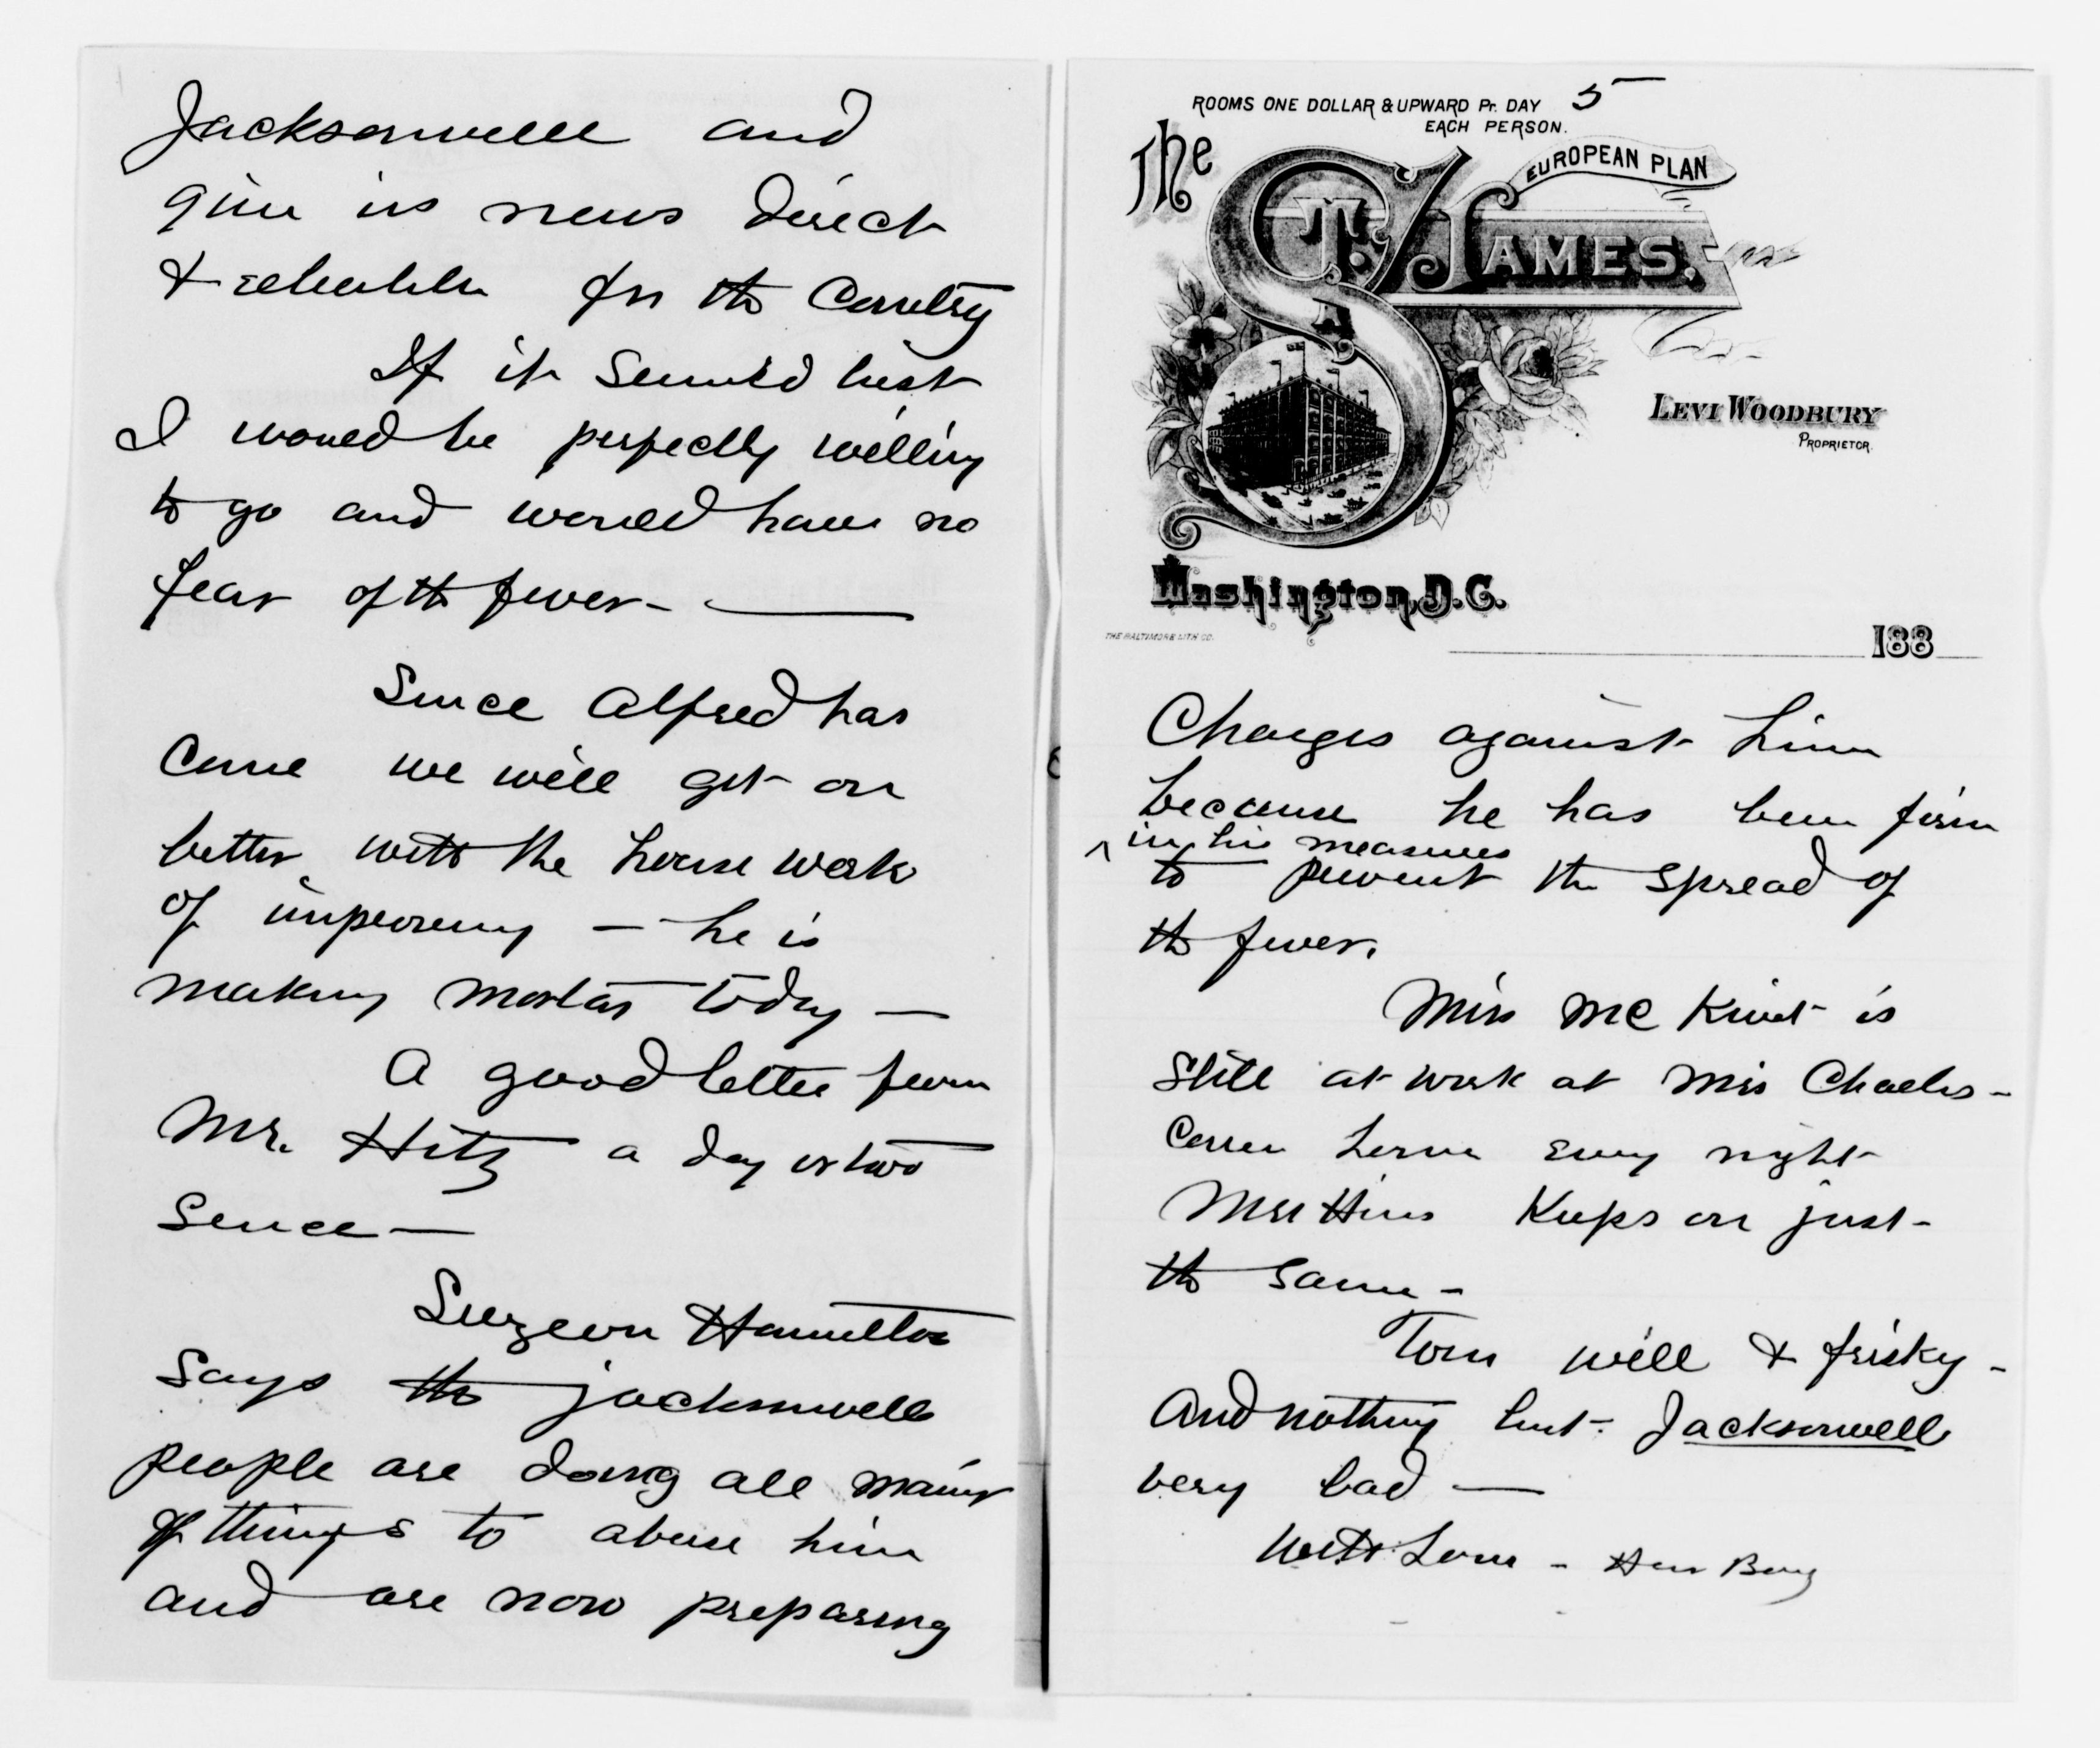 Jacksonvill and
give us news direct
& reliable for the Country
If it seem'd best
I would be perfectly willing
to go and would have no
fear of the fever —
Since Alfred has
come we will get on
better with the house work
of improving — he is
making mortar today —
A good letter from
Mr. Hitz a day or two
Since —
Surgeon Hamilton
says the Jacksonvill
people are doing all manr
of things to abuse him
and are now preparing
ROOMS ONE DOLLAR & UPWARD Pr. DAY 5
EACH PERSON.
The
EUROPEAN PLAN
ST. JAMES.
LEVI WOODBURY
PROPRIETOR.
Washington, D.C.
THE BALTIMORE LITH CO.
188
Charges against him
because he has been firm
^ in his measures
to prevent the spread of
the fever.
Miss Mc is
still at work at Mrs Charles -
Comes home every night
Keeps on just -
the same -
Tom well & frisky -
And nothing but Jacksonvill
very bad —
With Love -